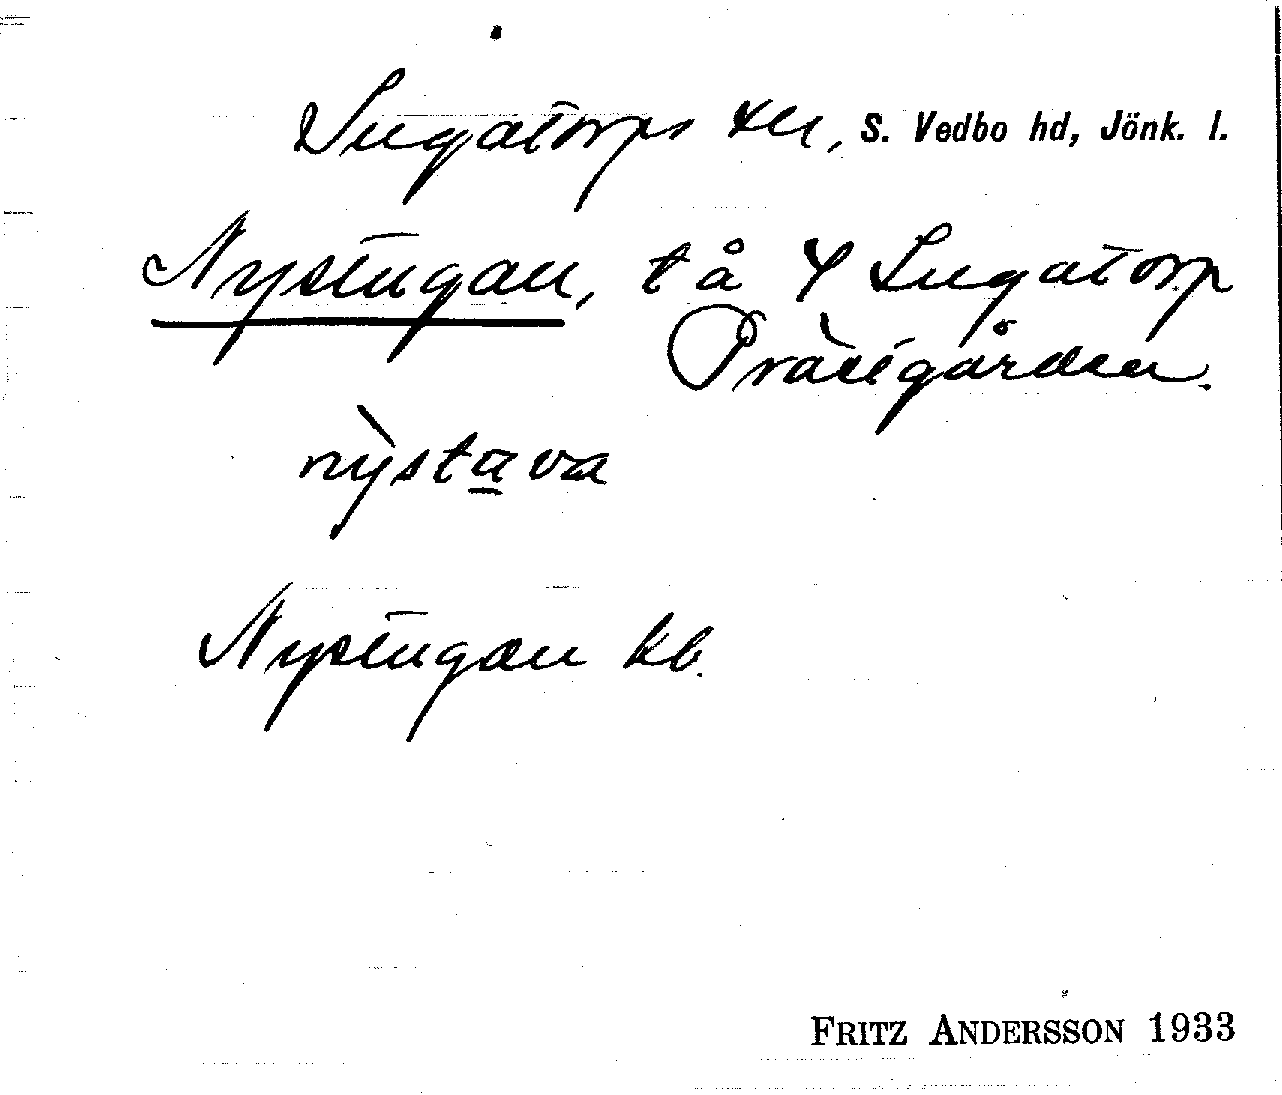 Ingatorps sn, S. Vedbo hd, Jönk. l.
Nystugan, t å Y Ingatorp
Prästgården.
nỳstava
Nystugan kb.
FRITZ ANDERSSON 1933